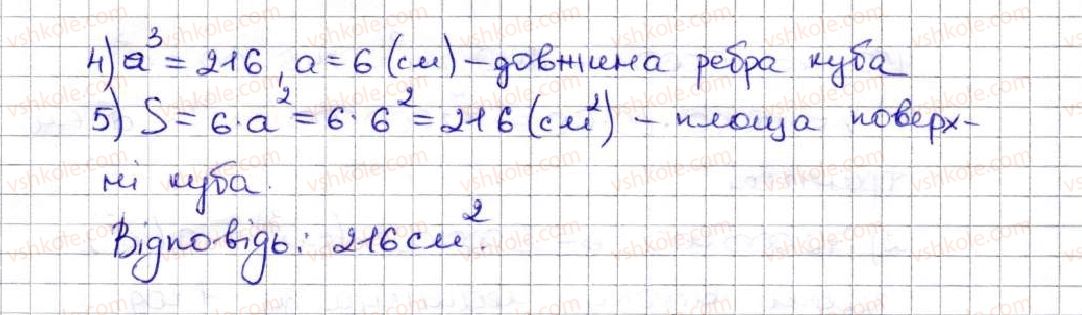 4) a³ = 216, a = 6 (см) – довжина ребра куба
5) S = 6·a² = 6·6² = 216 (см²) – площа поверх-
ні куба.
Відповідь: 216 см².